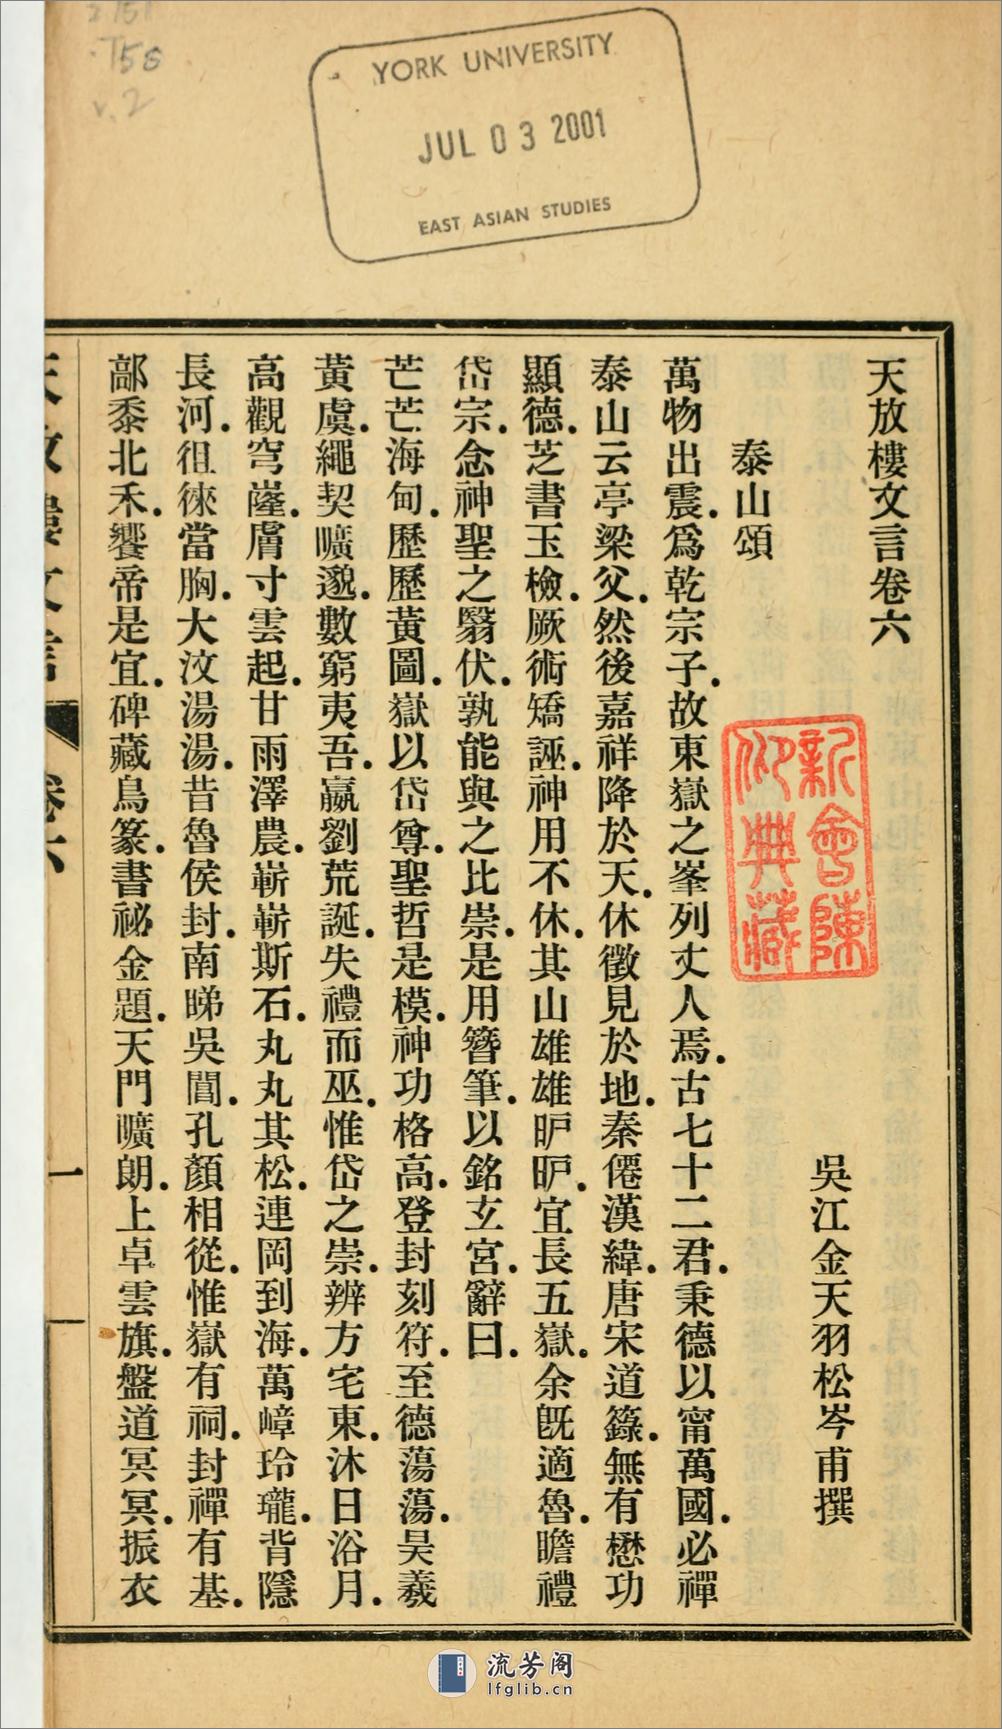 2151
.T58
v.2
YORK UNIVERSITY
JUL 03 2001
EAST ASIAN STUDIES
天放樓文言卷六
吳江金天羽松岑甫撰
新會陳
典藏
泰山頌
萬物出震.爲乾宗子.故東嶽之峯列丈人焉.古七十二君.秉德以甯萬國.必禪
泰山云亭梁父.然後嘉祥降於天.休徵見於地.秦僊漢緯.唐宋道籙.無有懋功
顯德.芝書玉檢.厥術矯誣.神用不休.其山雄雄昈昈.宜長五嶽.余旣適魯.瞻禮
岱宗.念神聖之翳伏.孰能與之比崇.是用簪筆.以銘玄宮.辭曰.
芒芒海甸.歷歷黃圖.嶽以岱尊.聖哲是模.神功格高.登封刻符.至德蕩蕩.昊羲
黃虞.繩契曠邈.數窮夷吾.嬴劉荒誕.失禮而巫.惟岱之崇.辨方宅東.沐日浴月.
高觀穹窿.膚寸雲起.甘雨澤農.嶄嶄斯石.丸丸其松.連岡到海.萬嶂玲瓏.背隱
長河.徂徠當胸.大汶湯湯.昔魯侯封.南睇吳閶.孔顏相從.惟嶽有祠.封禪有基.
鄗黍北禾.饗帝是宜.碑藏鳥篆.書祕金題.天門曠朗.上卓雲旗.盤道冥冥.振衣
天放樓文言
卷六
一
流芳阁
lfglib.cn